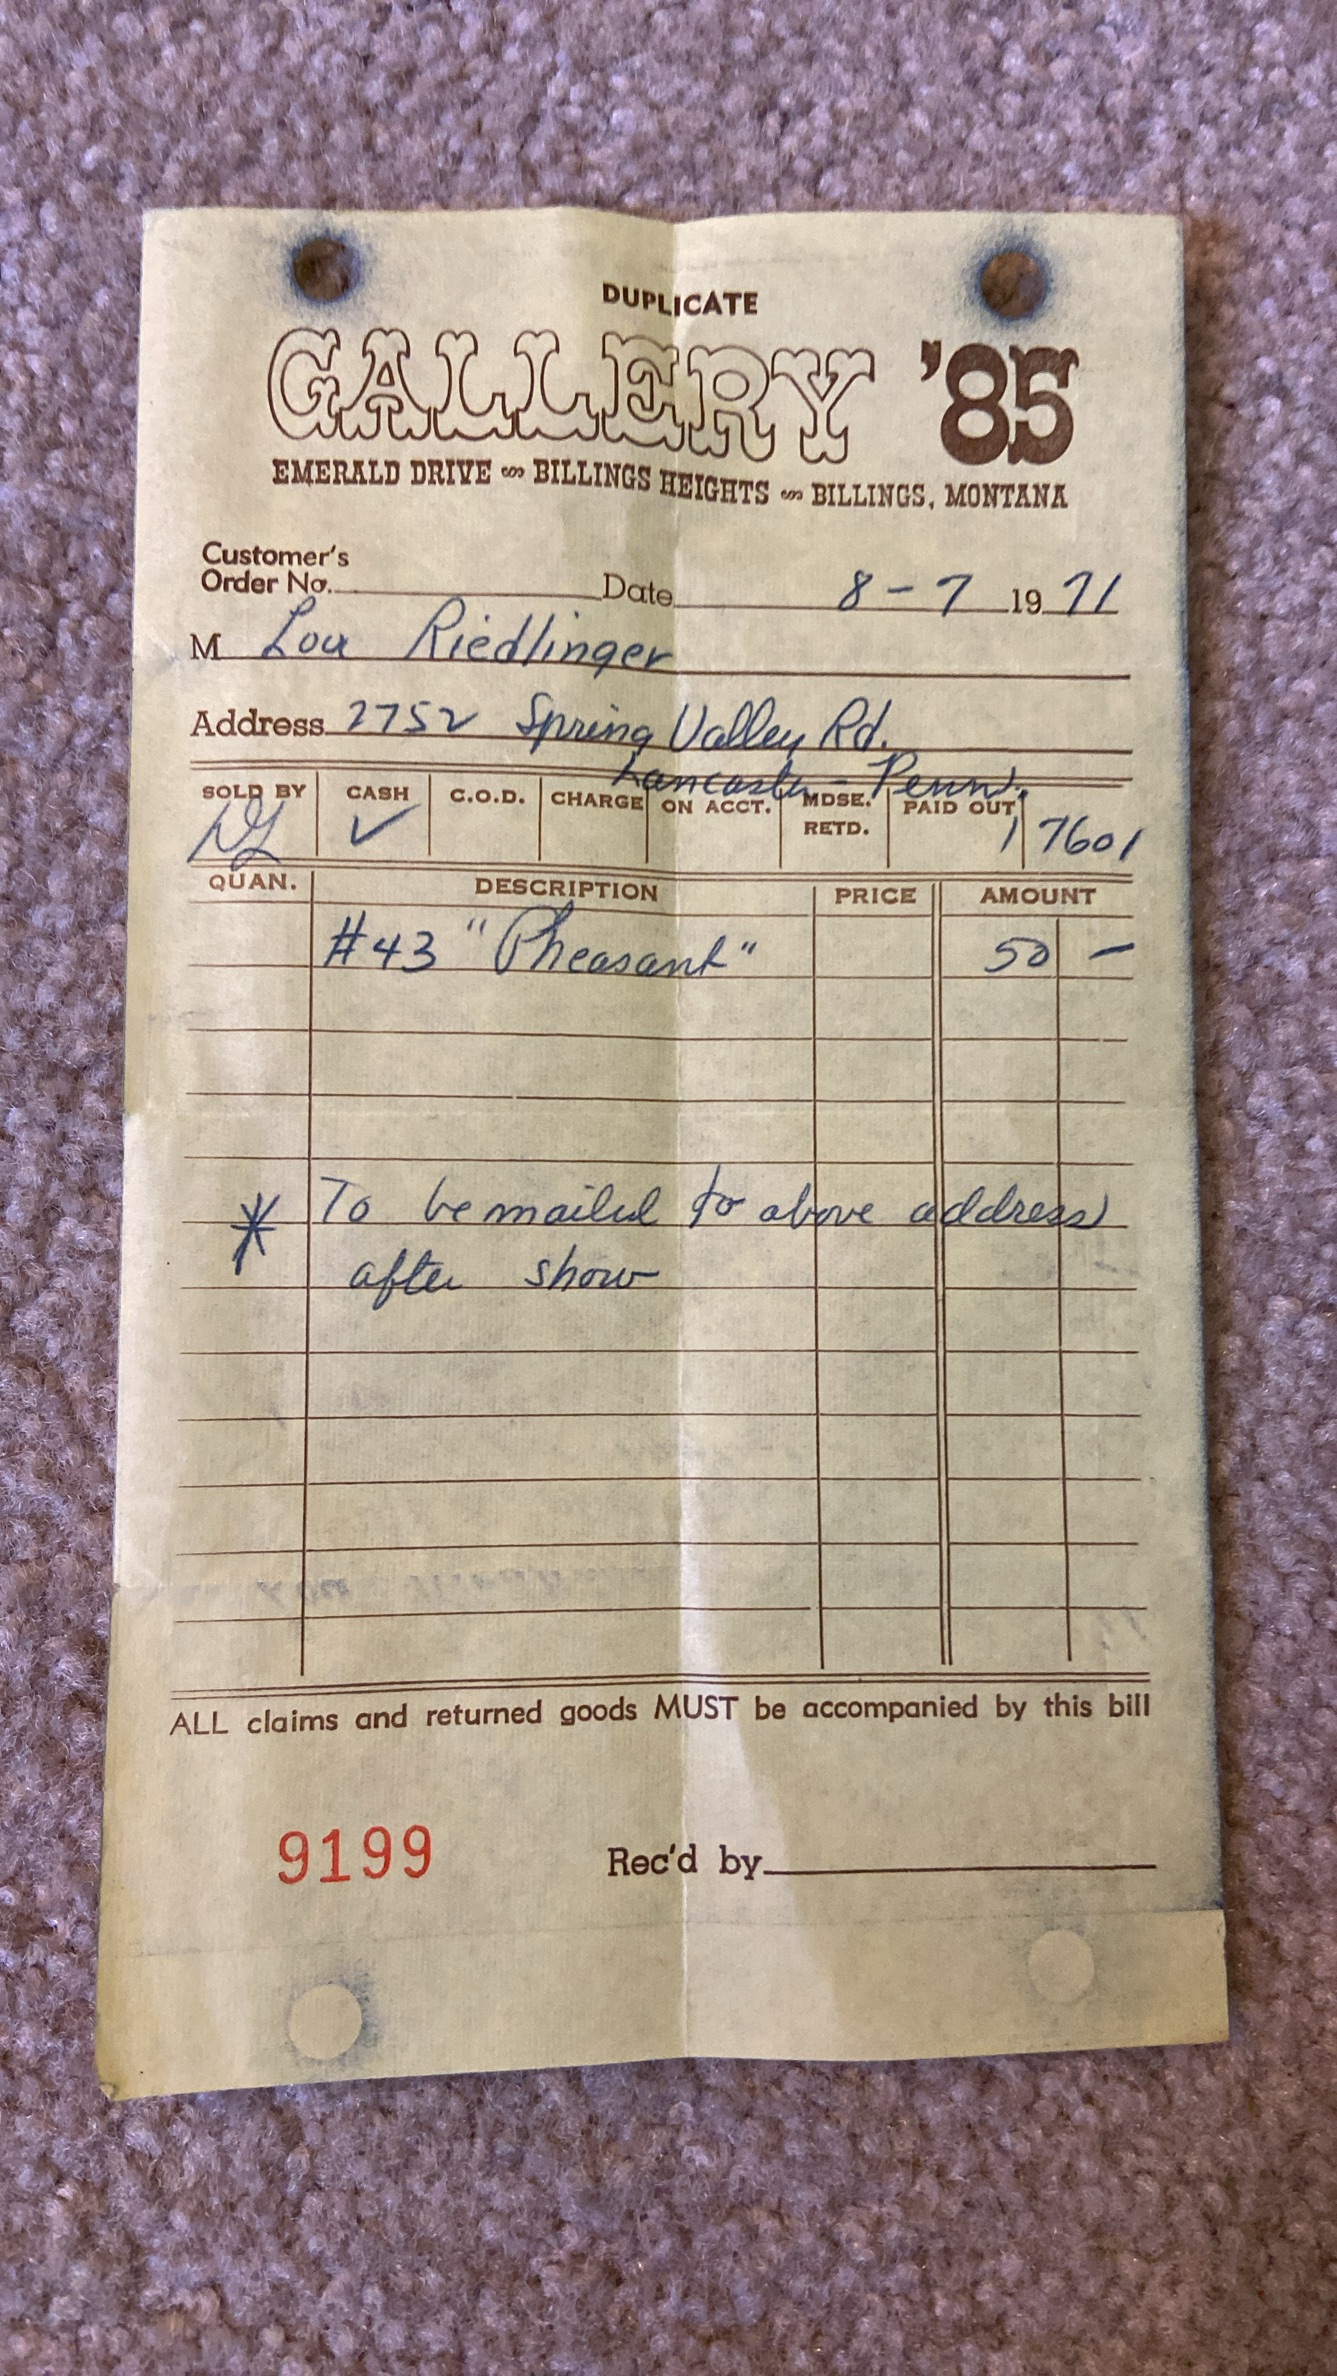 DUPLICATE
GALLERY '85
EMERALD DRIVE ∞ BILLINGS HEIGHTS ∞ BILLINGS, MONTANA
Customer's
Order No. Date 8-7 1971
M Lou Riedlinger
Address 2752 Spring Valley Rd.
Lancaster - Penn.
SOLD BY CASH C.O.D. CHARGE ON ACCT. MDSE. RETD. PAID OUT
✓ 17601
QUAN. DESCRIPTION PRICE AMOUNT
#43 "Pheasant" 50 -
* To be mailed to above address
after show
ALL claims and returned goods MUST be accompanied by this bill
9199 Rec'd by